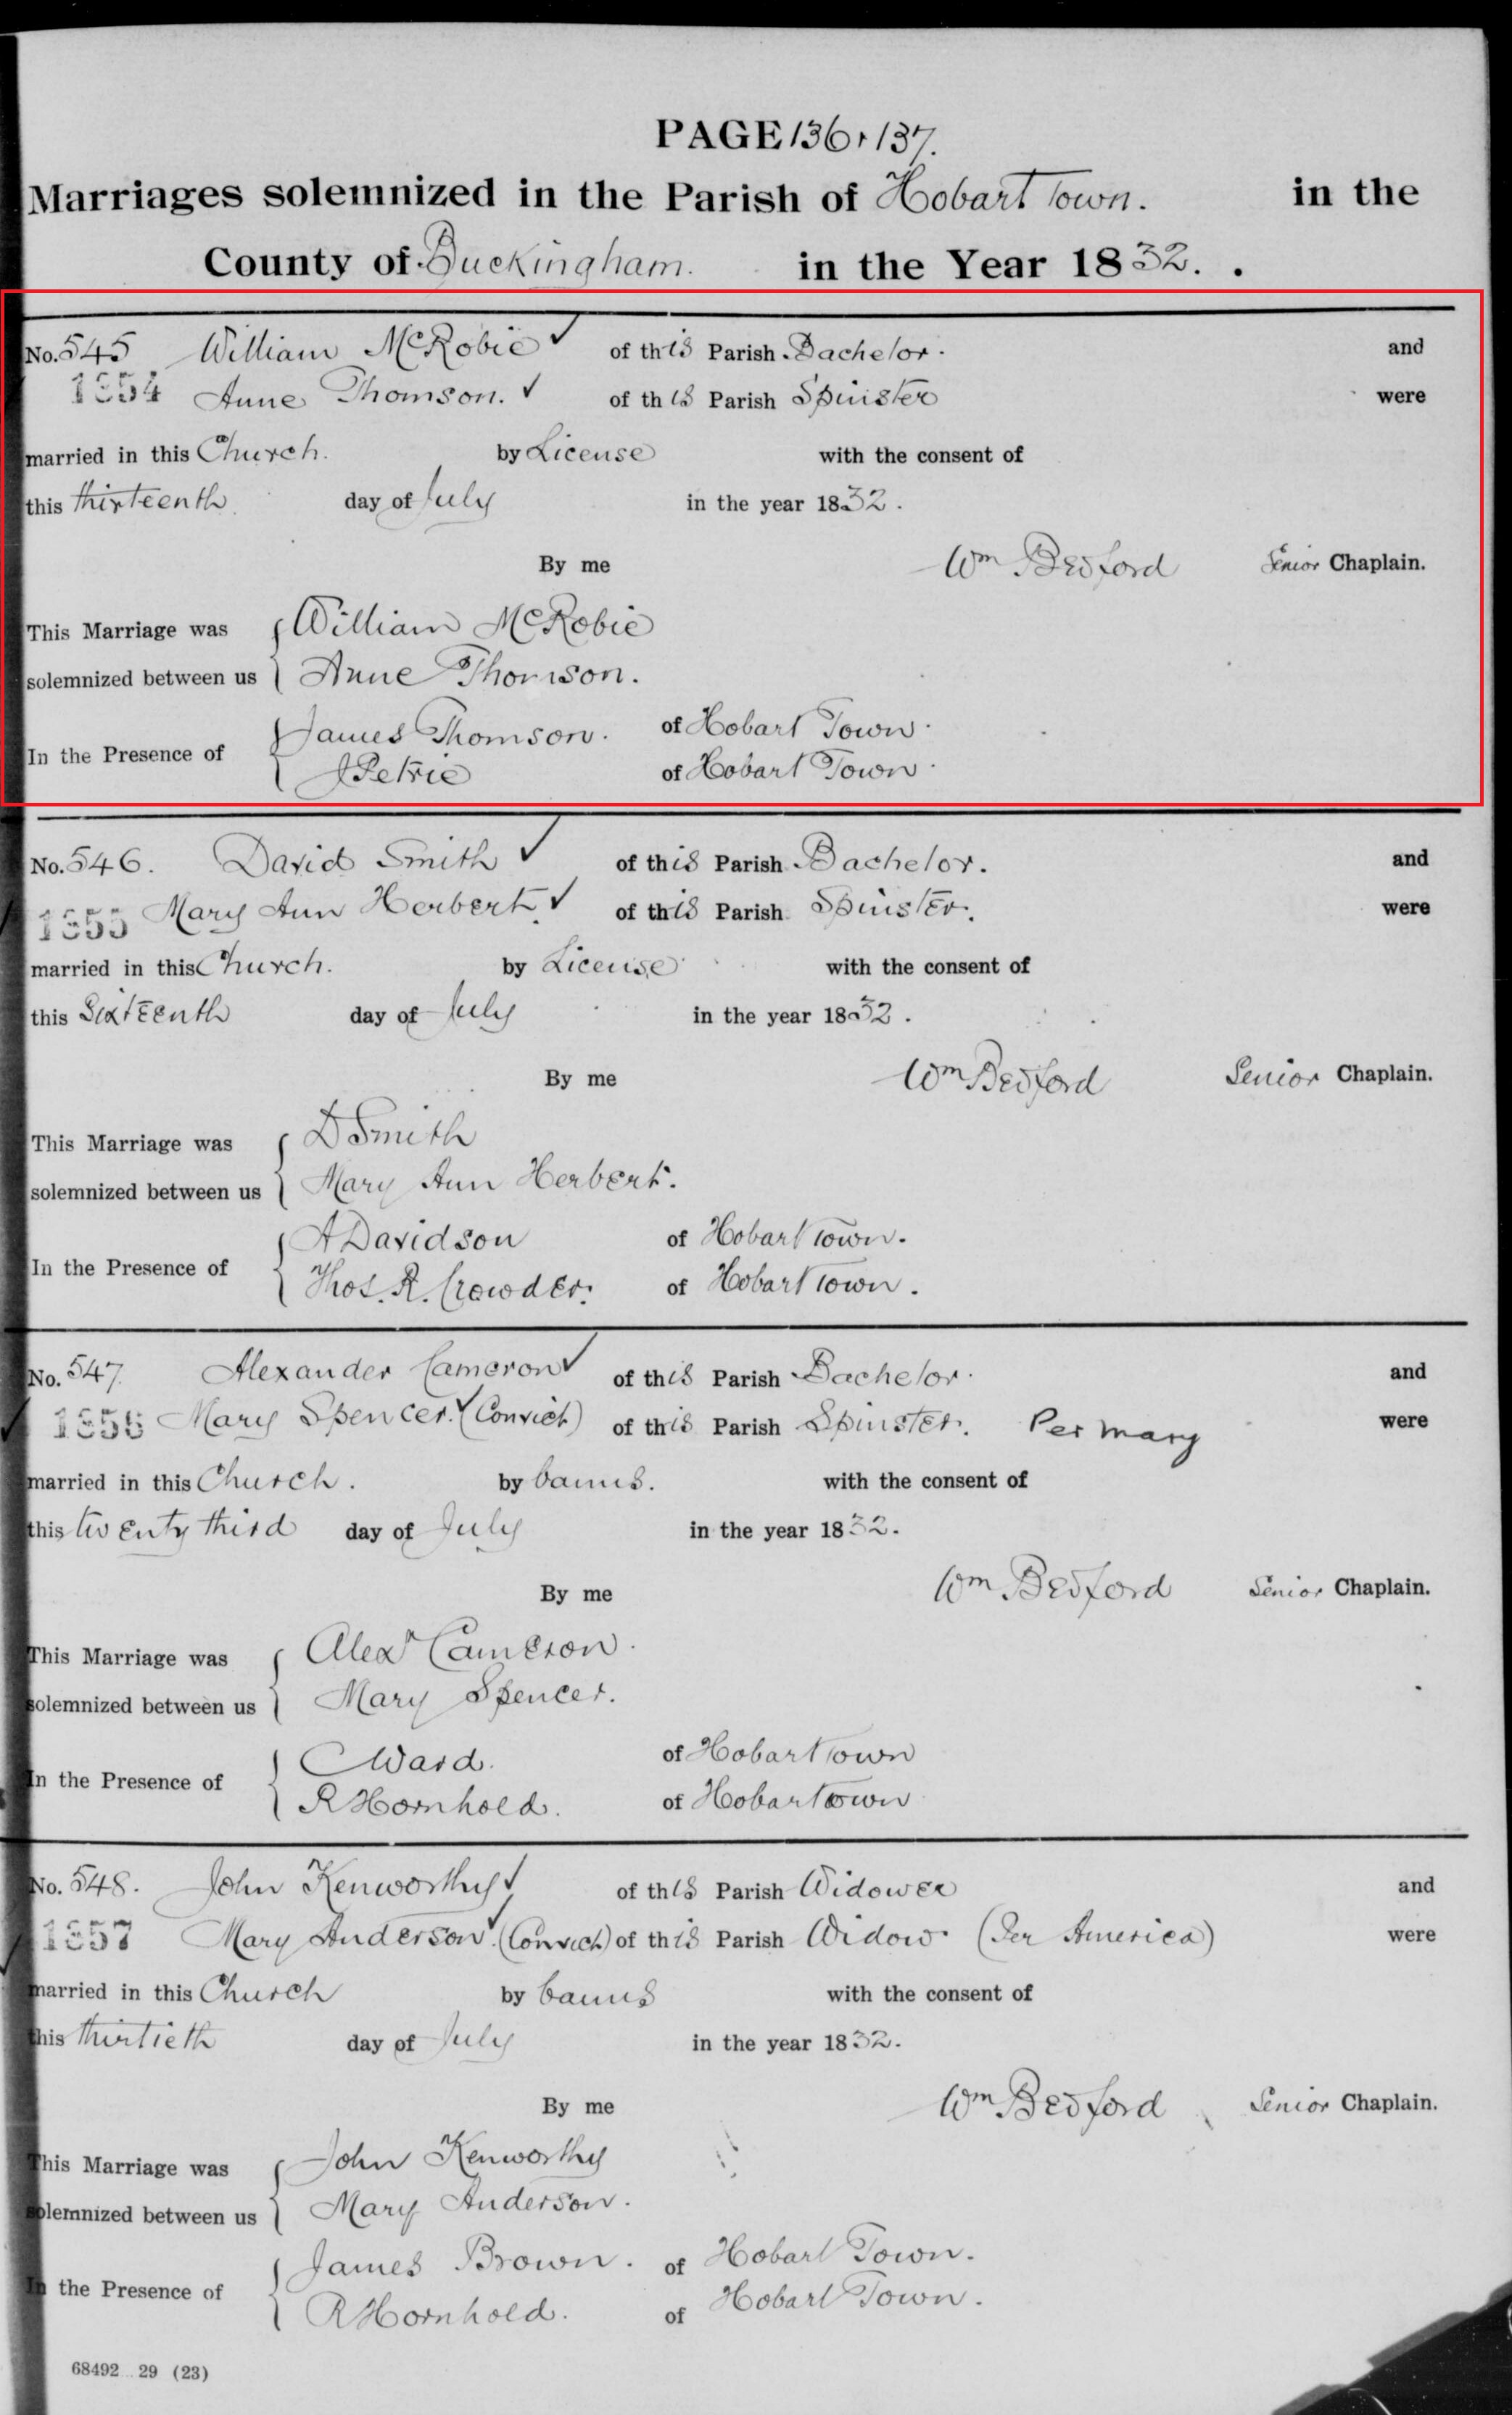 PAGE 136 & 137.
Marriages solemnized in the Parish of Hobart Town. in the
County of Buckingham. in the Year 1832.
No. 545 William McRobie ✓ of this Parish Bachelor. and
1354 Anne Thomson. ✓ of this Parish Spinster were
married in this Church. by License with the consent of
this thirteenth day of July in the year 1832.
By me Wm Bedford Senior Chaplain.
This Marriage was { William McRobie
solemnized between us { Anne Thomson.
In the Presence of { James Thomson. of Hobart Town.
{ J Petrie of Hobart Town.
No. 546. David Smith ✓ of this Parish Bachelor. and
1355 Mary Ann Herbert. ✓ of this Parish Spinster. were
married in this Church. by License with the consent of
this Sixteenth day of July in the year 1832.
By me Wm Bedford Senior Chaplain.
This Marriage was { D Smith
solemnized between us { Mary Ann Herbert.
In the Presence of { A Davidson of Hobart Town.
{ Thos. R. Crowder. of Hobart Town.
No. 547. Alexander Cameron ✓ of this Parish Bachelor. and
1356 Mary Spencer. ✓ (Convict) of this Parish Spinster. Per Mary were
married in this Church. by banns. with the consent of
this twenty third day of July in the year 1832.
By me Wm Bedford Senior Chaplain.
This Marriage was { Alexr Cameron.
solemnized between us { Mary Spencer.
In the Presence of { C Ward. of Hobart Town
{ R Hornhold. of Hobart Town
No. 548. John Kenworthy ✓ of this Parish Widower and
1357 Mary Anderson ✓ (Convict) of this Parish Widow. (Per America) were
married in this Church by banns with the consent of
this thirtieth day of July in the year 1832.
By me Wm Bedford Senior Chaplain.
This Marriage was { John Kenworthy
solemnized between us { Mary Anderson.
In the Presence of { James Brown. of Hobart Town.
{ R Hornhold. of Hobart Town.
68492 29 (23)